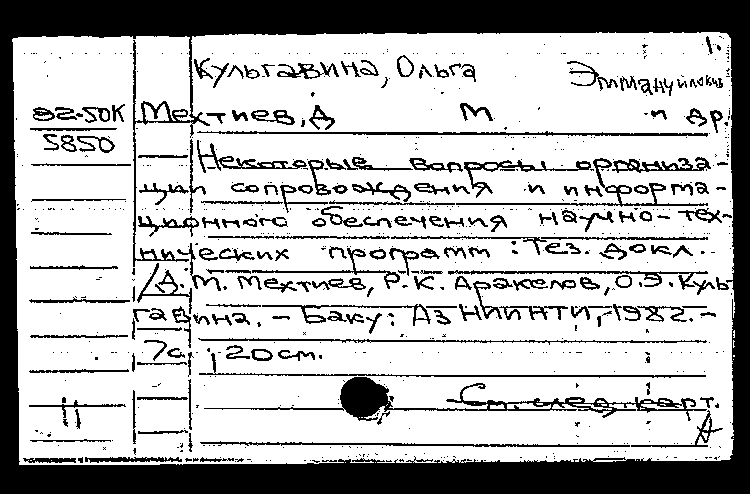 1.
Кульгавина, Ольга Эммануиловна
82-50К Мехтиев, Д М и др.
5850
Некоторые вопросы организа-
ции сопровождения и информа-
ционного обеспечения научно-тех-
нических программ : Тез. докл.
/Д. М. Мехтиев, Р. К. Аракелов, О. Э. Куль-
гавина. - Баку: АзНИИНТИ, 1982. -
7с ; 20 см.
См. след. карт.
11